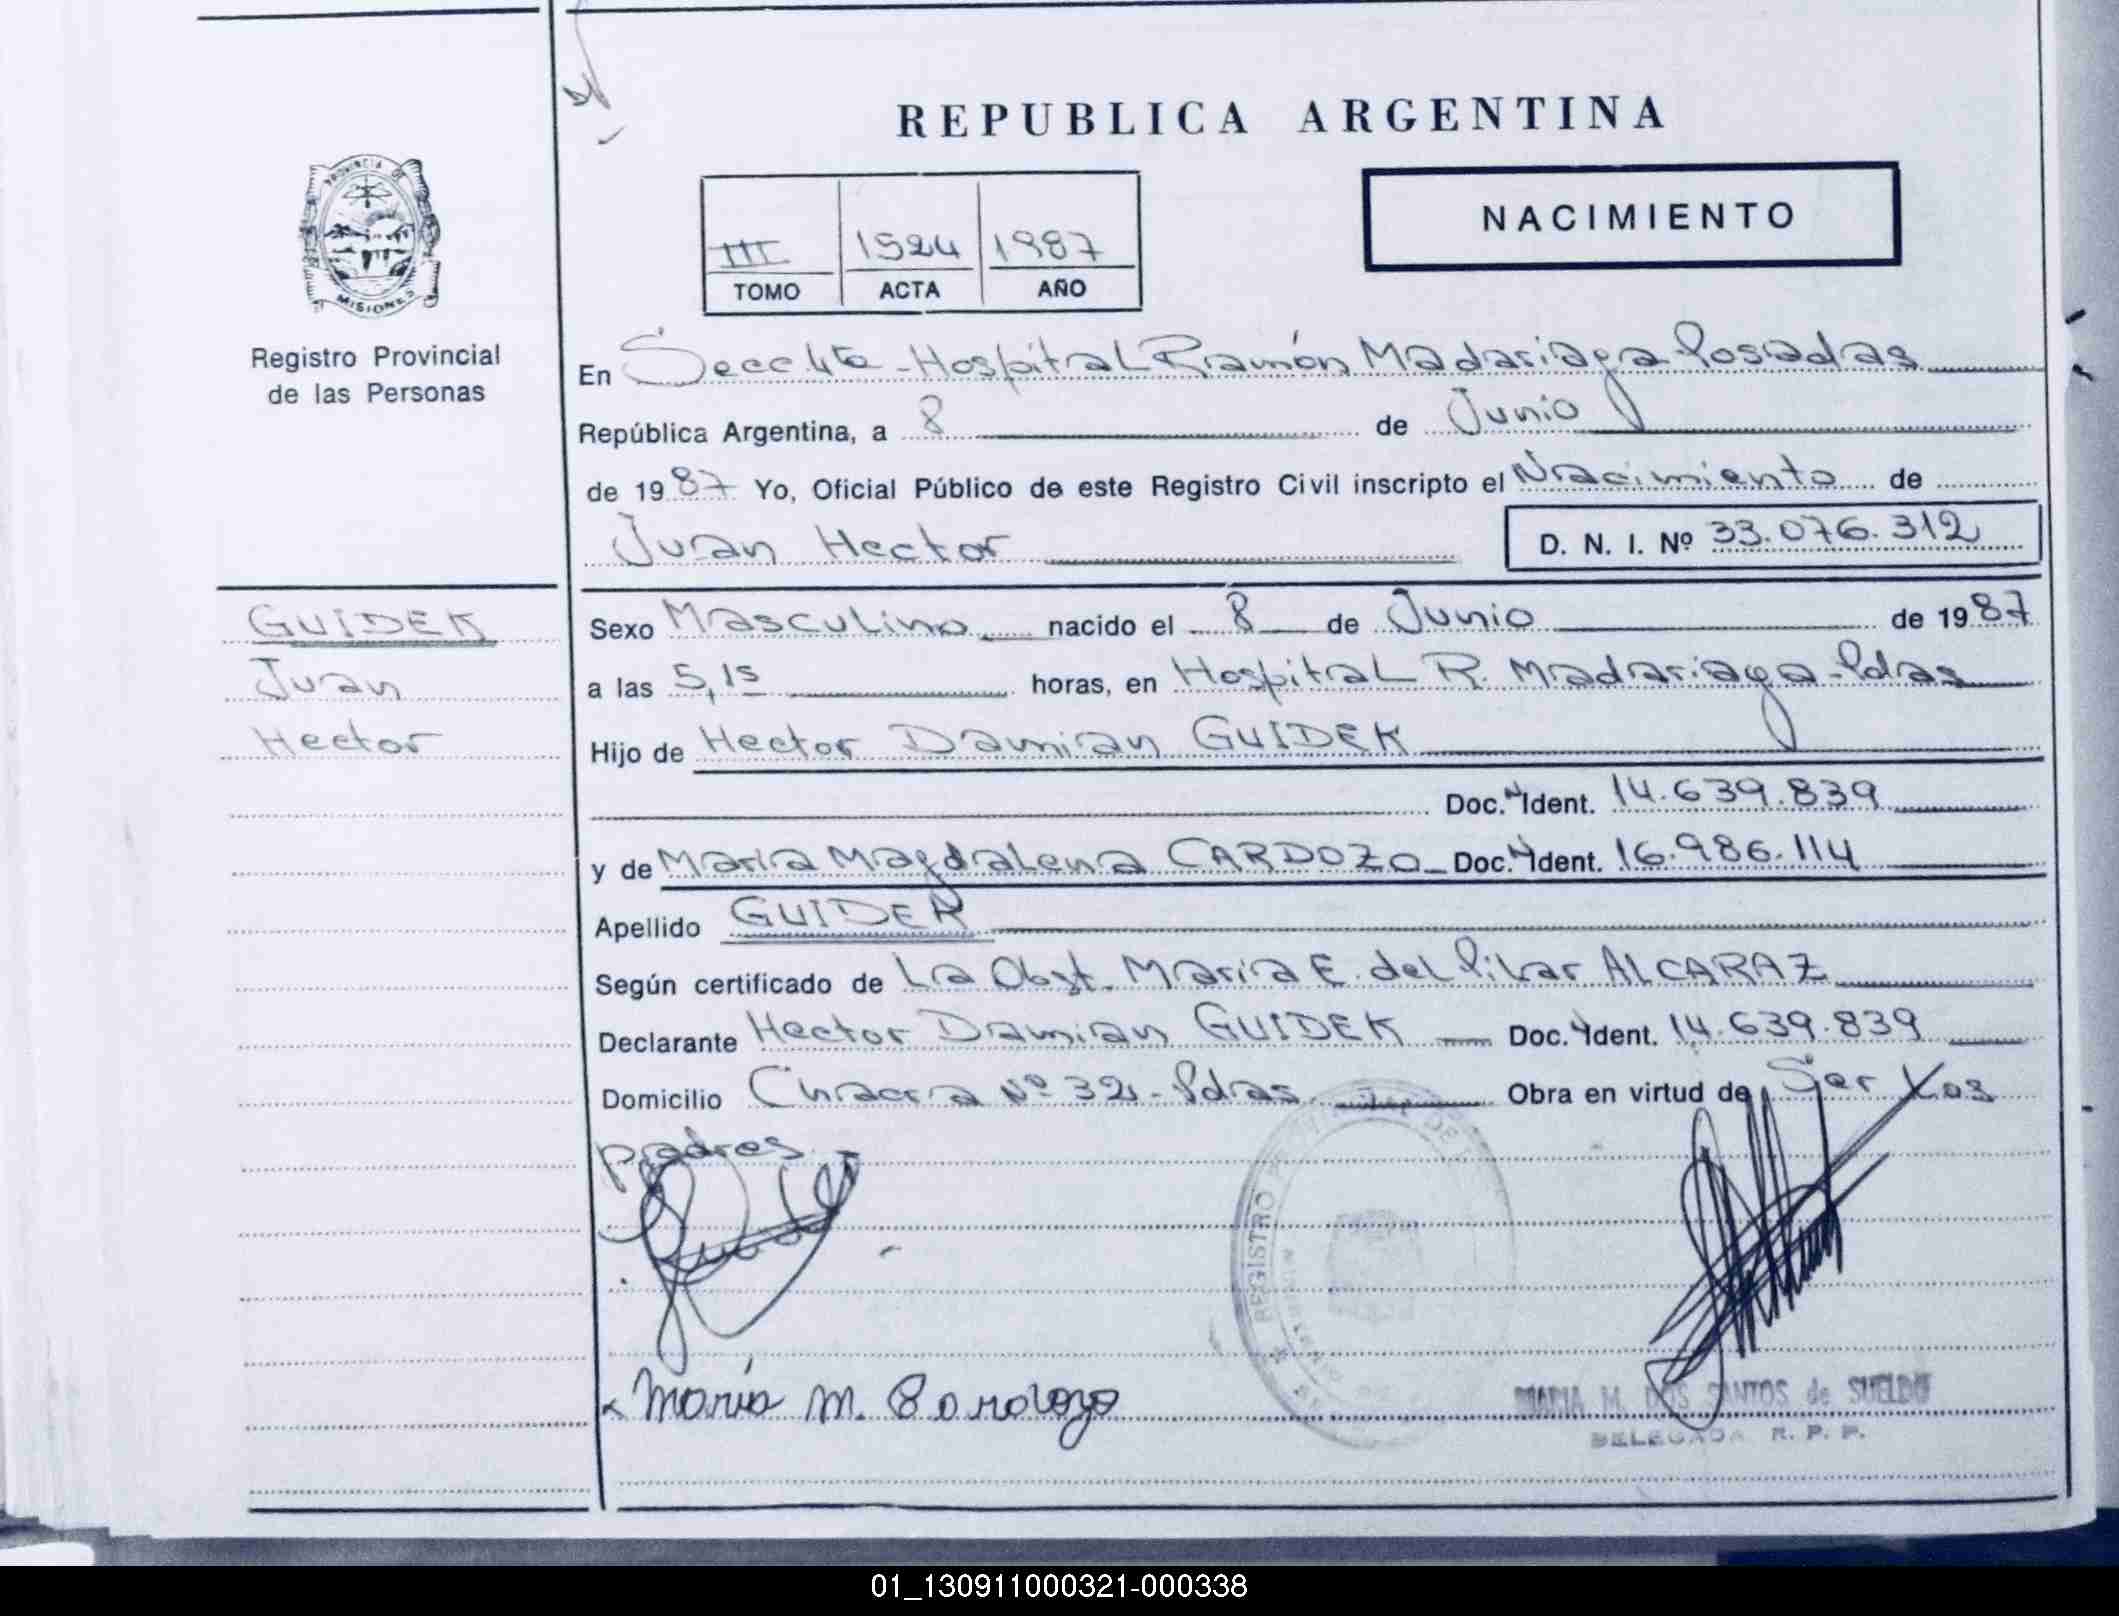 REPUBLICA ARGENTINA
PROVINCIA DE
MISIONES
Registro Provincial
de las Personas
NACIMIENTO
III 1524 1987
TOMO ACTA AÑO
En Secc 4ta - Hospital Ramón Madariaga - Posadas
República Argentina, a 8 de Junio
de 1987 Yo, Oficial Público de este Registro Civil inscripto el Nacimiento de
Juan Hector D. N. I. Nº 33.076.312
GUIDEK
Juan
Hector
Sexo Masculino nacido el 8 de Junio de 1987
a las 5,15 horas, en Hospital R. Madariaga - Pdas
Hijo de Hector Damian GUIDEK
Doc. Ident. 14.639.839
y de Maria Magdalena CARDOZO Doc. Ident. 16.986.114
Apellido GUIDEK
Según certificado de La Obst. Maria E. del Pilar ALCARAZ
Declarante Hector Damian GUIDEK Doc. Ident. 14.639.839
Domicilio Chacra Nº 32 - Pdas Obra en virtud de Ser los
padres
REGISTRO
María M. Cardozo
MARIA M. DOS SANTOS de SUELDO
DELEGADA R. P. P.
01_130911000321-000338